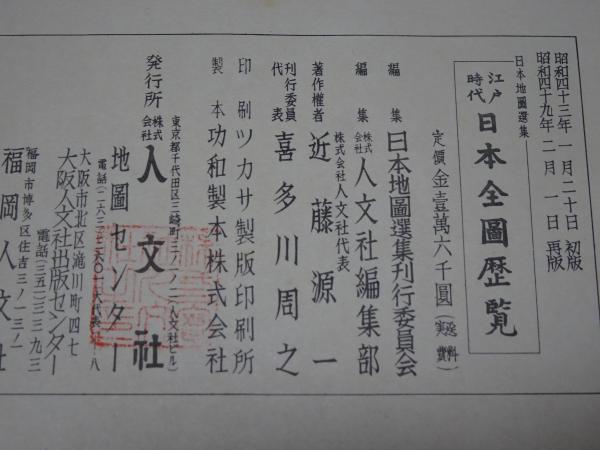 昭和四十三年一月二十日 初版
昭和四十九年二月一日 再版
日本地圖選集
江戸時代 日本全圖歴覧
定價金壹萬六千圓(送料実費)
編集 日本地圖選集刊行委員会
編集 株式会社 人文社編集部
株式会社人文社代表
著作權者 近藤源一
刊行委員代表 喜多川周之
印刷 ツカサ製版印刷所
製本 功和製本株式会社
東京都千代田区三崎町三ノ一ノ二 人文社ビル
発行所 株式会社 人文社
地圖センター
大阪市北区滝川町四七
大阪人文社出版センター
電話(三五)三三九三
福岡市博多区住吉三ノ一三ノ一
福岡人文社